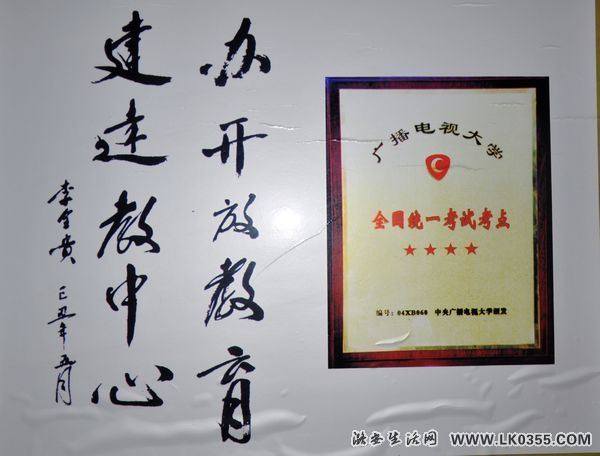 办开放教育
建教中心
李贵 己丑年五月
广播电视大学
全国统一考试考点
★★★★
编号：04XB060 中央广播电视大学颁发
潞安生活网 WWW.LK0355.COM